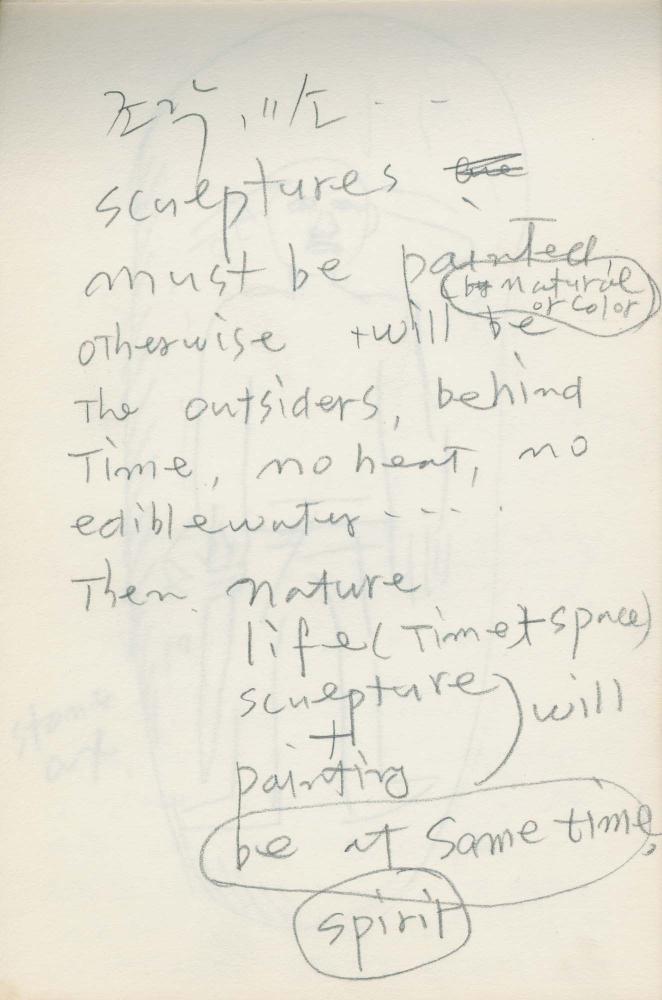 조각, "소 - -
sculptures
must be painted
(by natural
or color
otherwise twill be
The outsiders, behind
Time, no heat, no
edible water - - - -
Then nature
life (Time + space)
sculpture
+
painting
) will
be at same time,
spirit
stone
art